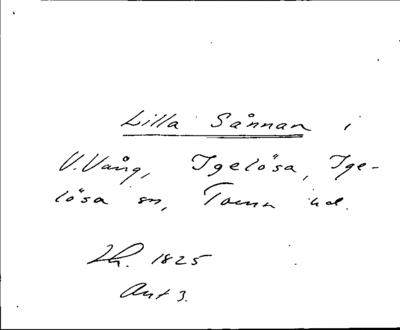 Lilla Sånnan i
V. Vång, Igelösa, Ige-
lösa sn, Torna hd.
Lh. 1825
Ant 3.